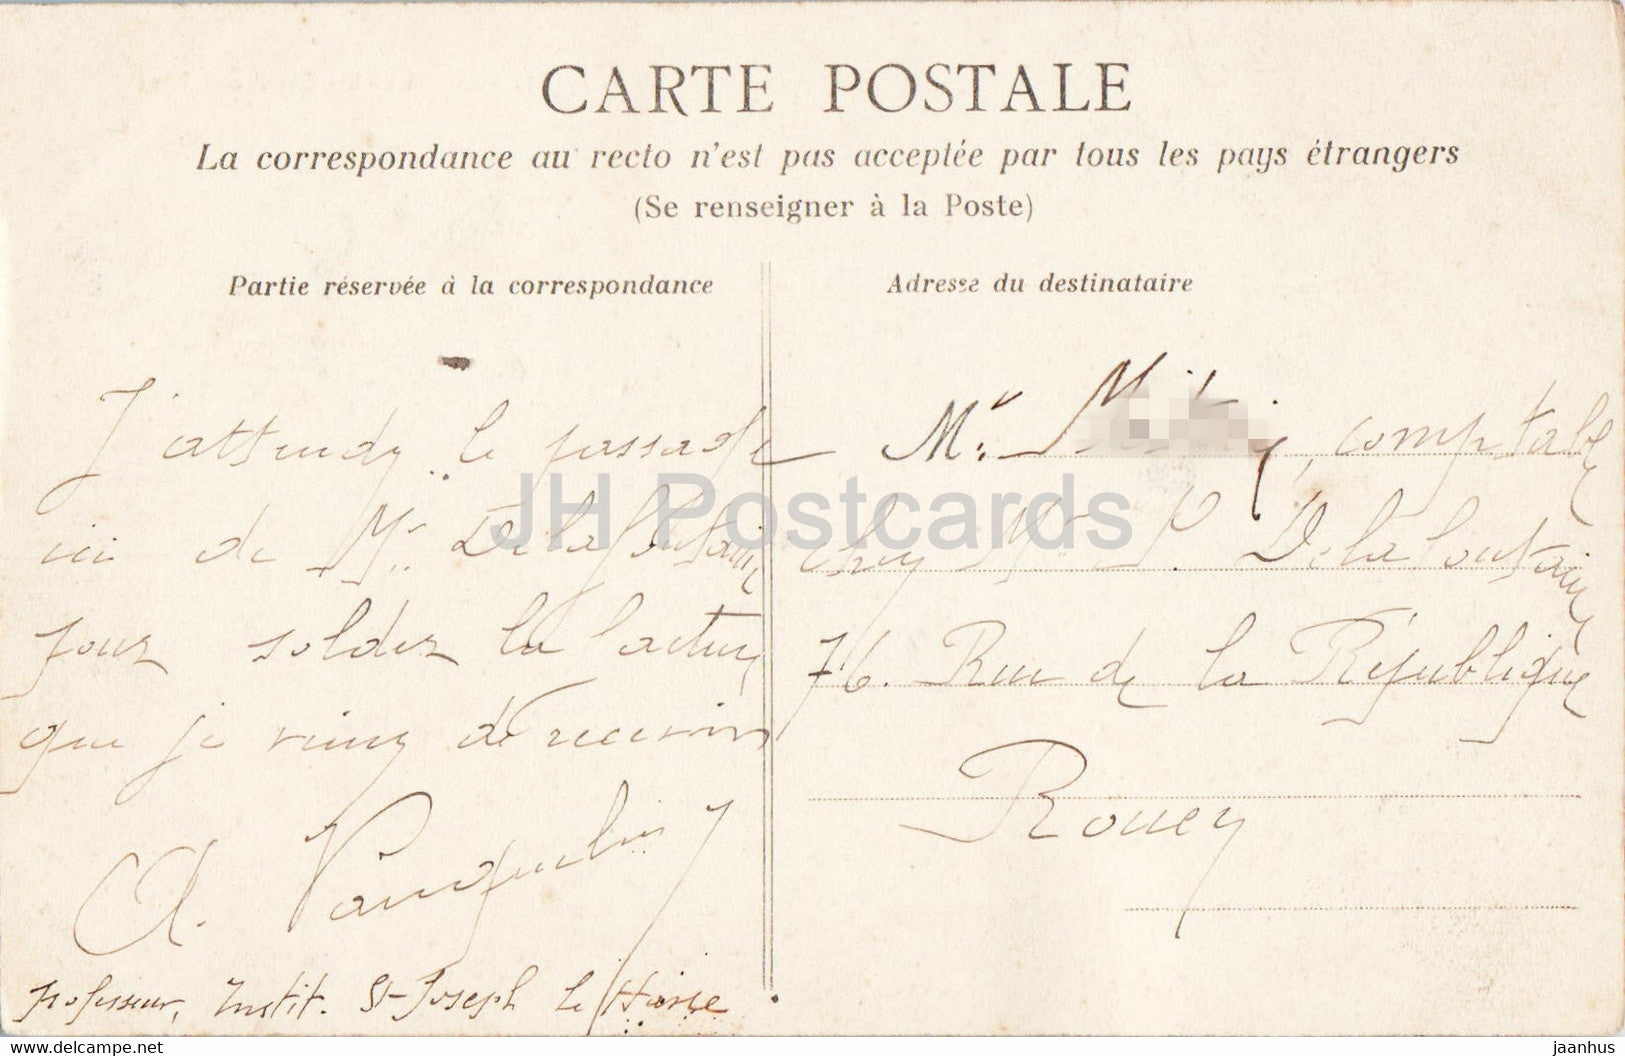 CARTE POSTALE
La correspondance au recto n'est pas acceptée par tous les pays étrangers
(Se renseigner à la Poste)
Partie réservée à la correspondance
J'attends le passage
ici de Mr. Delafontaine
pour solder la facture
que je viens de recevoir
A. Vauquelin
professeur, Instit. St-Joseph le Havre
Adresse du destinataire
Mr. , comptable
chez Mr P. Delafontaine
76. Rue de la République
Rouen
JH Postcards
delcampe.net
jaanhus